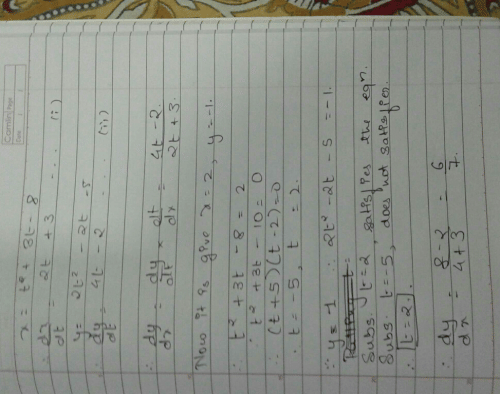 x = t² + 3t - 8
∴ dx/dt = 2t + 3 ... (i)
y = 2t² - 2t - 5
∴ dy/dt = 4t - 2 ... (ii)
∴ dy/dx = dy/dt × dt/dx = 4t - 2 / 2t + 3.
Now it is give x = 2, y = -1.
∴ t² + 3t - 8 = 2
∴ t² + 3t - 10 = 0
∴ (t + 5)(t - 2) = 0
∴ t = -5, t = 2.
∵ y = -1 ∴ 2t² - 2t - 5 = -1.
Subs. t = 2, satisfies the eqn.
Subs. t = -5, does not satisfies.
∴ t = 2.
∴ dy/dx = 8 - 2 / 4 + 3 = 6/7.